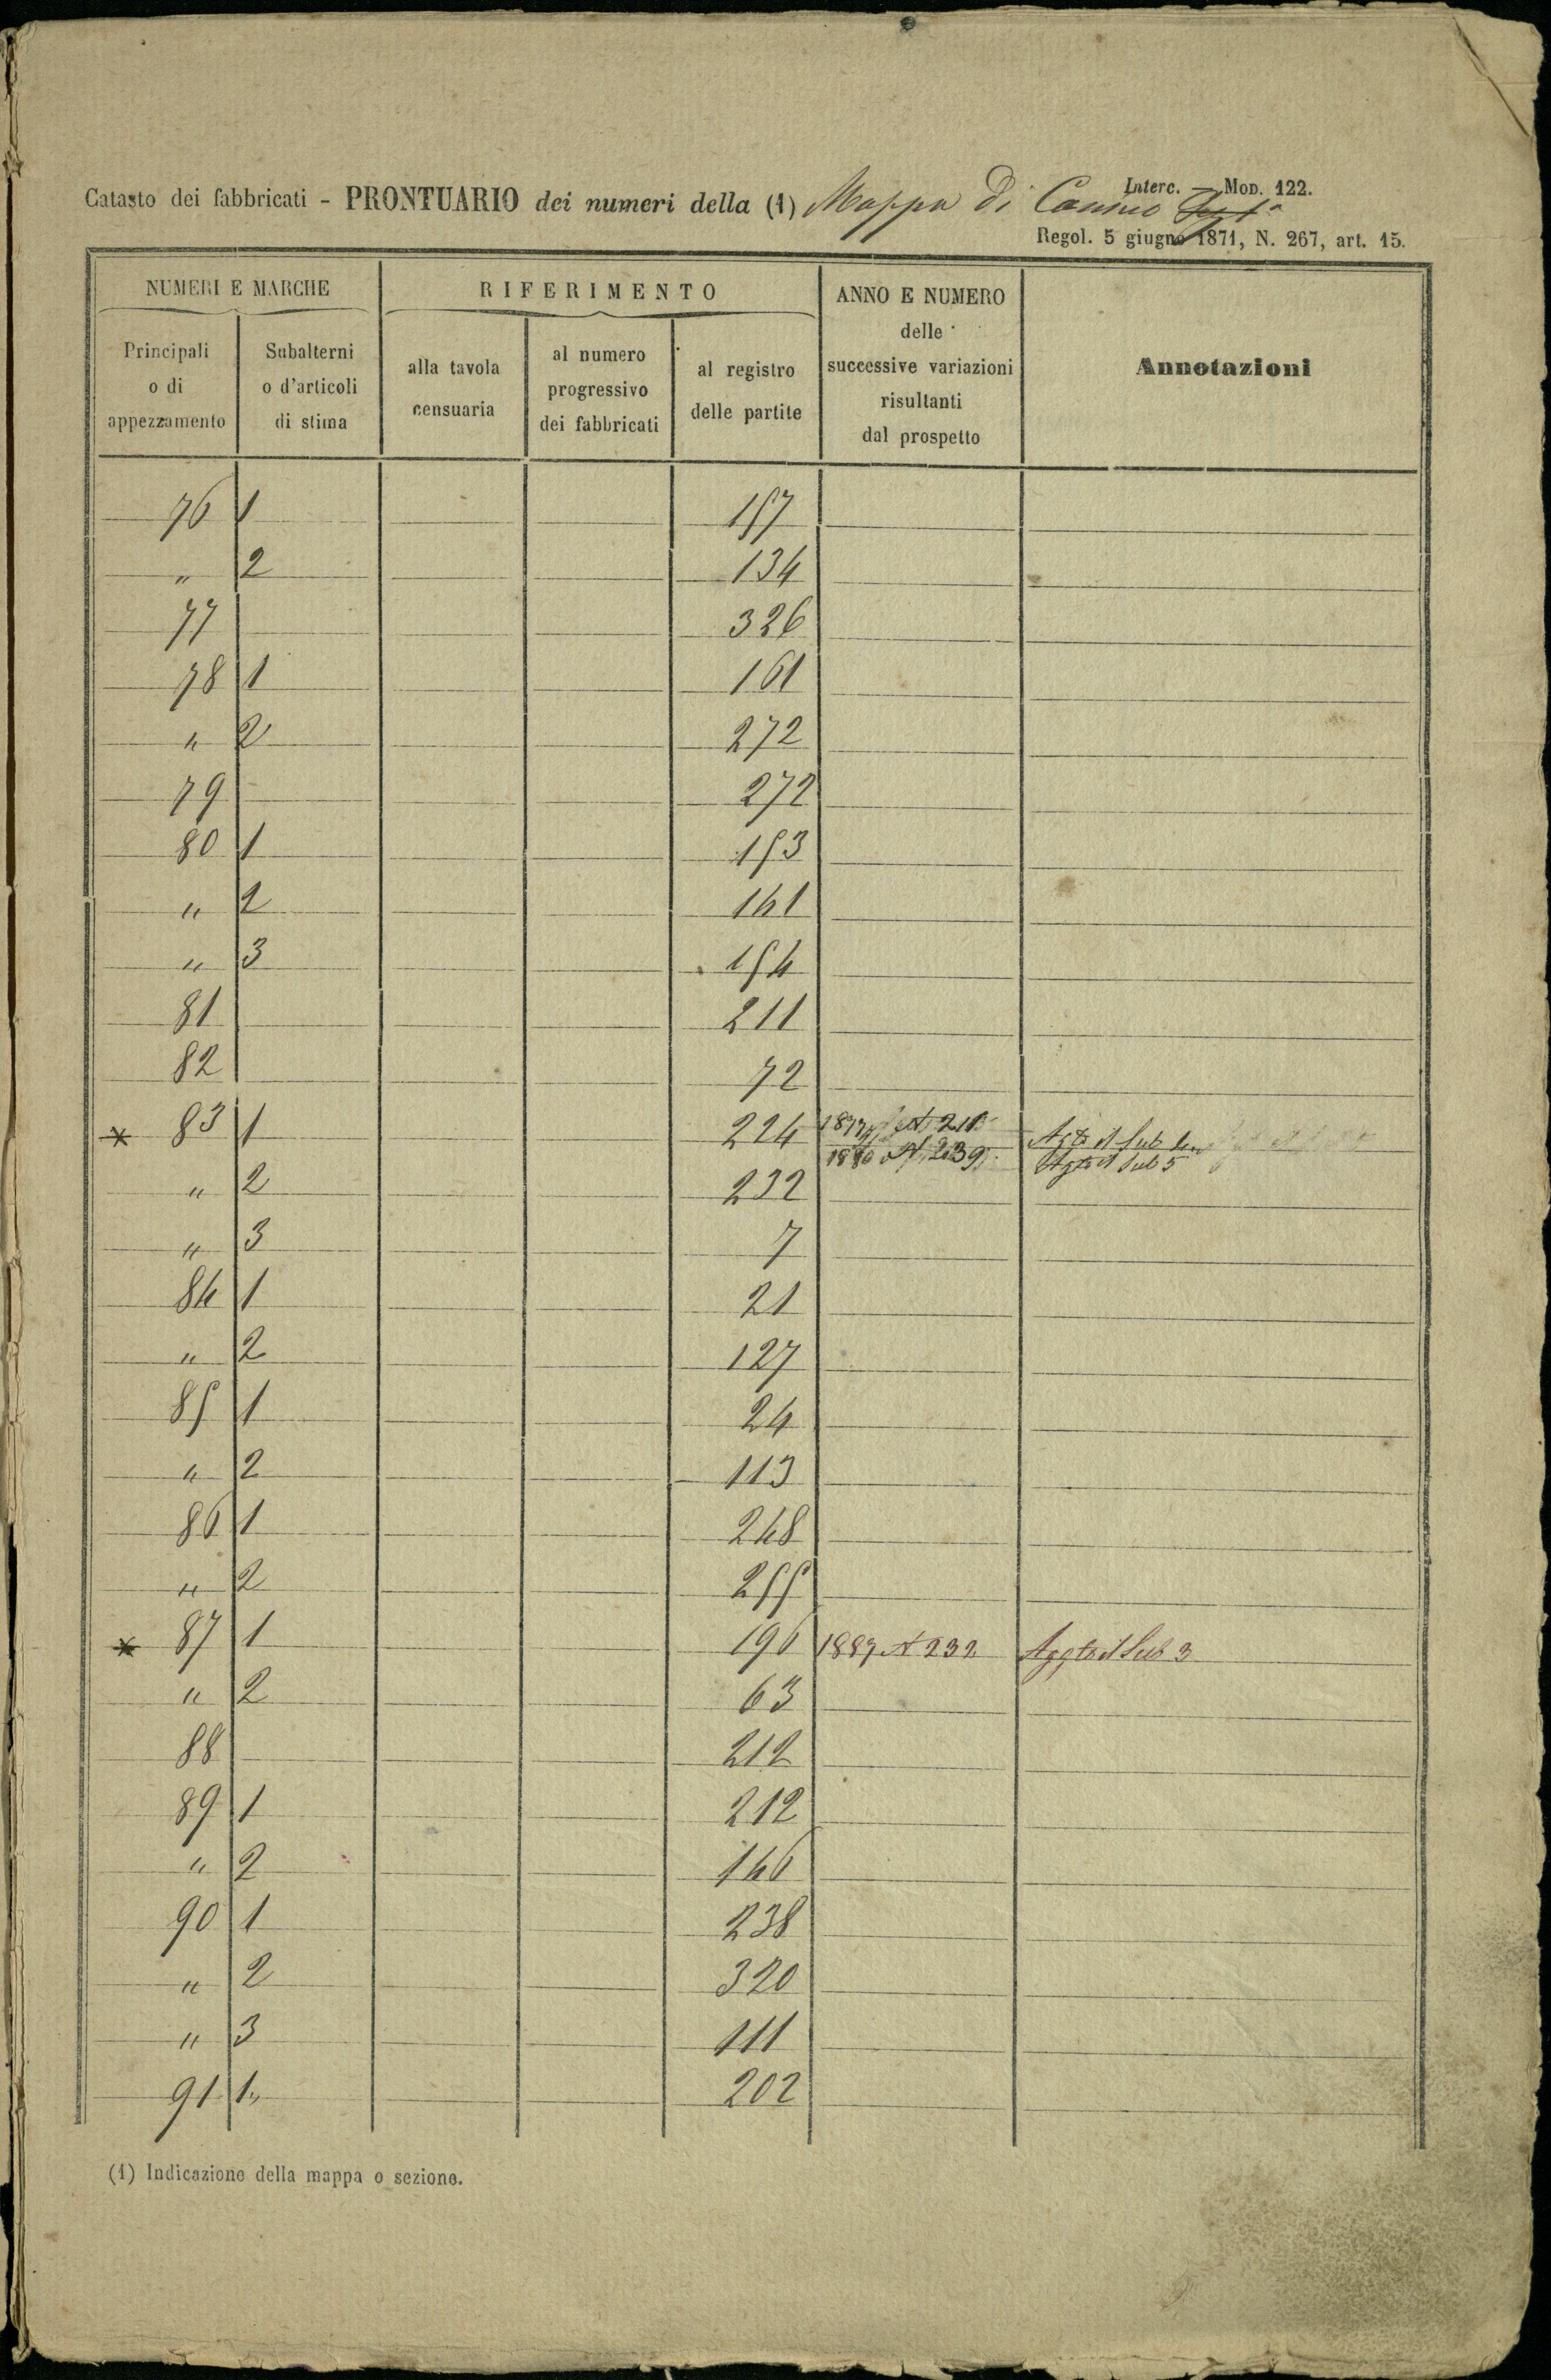 Interc. — Mod. 122.
Catasto dei fabbricati - PRONTUARIO dei numeri della (1) Mappa Di
Regol. 5 giugno 1871, N. 267, art. 15.
NUMERI E MARCHE RIFERIMENTO ANNO E NUMERO delle successive variazioni risultanti dal prospetto Annotazioni
Principali o di appezzamento Subalterni o d'articoli di stima alla tavola censuaria al numero progressivo dei fabbricati al registro delle partite
76 1 157
" 2 134
77 326
78 1 161
" 2 272
79 272
80 1 153
" 2 141
" 3 154
81 211
82 72
* 83 1 224 Agto il Sub
1880 N. 239 Agto il Sub 5
" 2 232
" 3 7
84 1 21
" 2 127
85 1 24
" 2 113
86 1 248
" 2 255
* 87 1 196 1887 N 232 Aggto il Sub 3
" 2 63
88 212
89 1 212
" 2 146
90 1 238
" 2 320
" 3 111
91 1 202
(1) Indicazione della mappa o sezione.